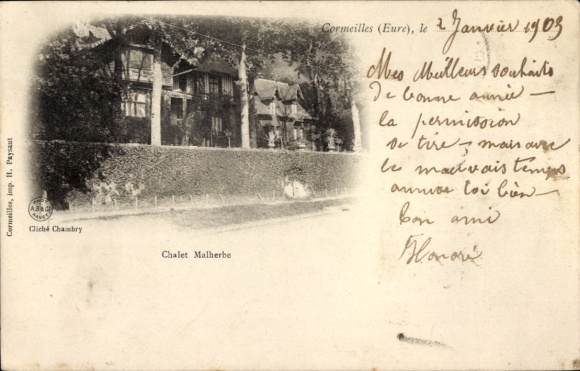 Cormeilles (Eure), le 2 Janvier 1903
Mes Meilleurs souhaits
de bonne année —
la permission
se tire — mais avec
le mauvais temps
amuse toi bien —
Ton ami
Honoré
Cormeilles, imp. H. Paysant
Cliché Chambry
Chalet Malherbe